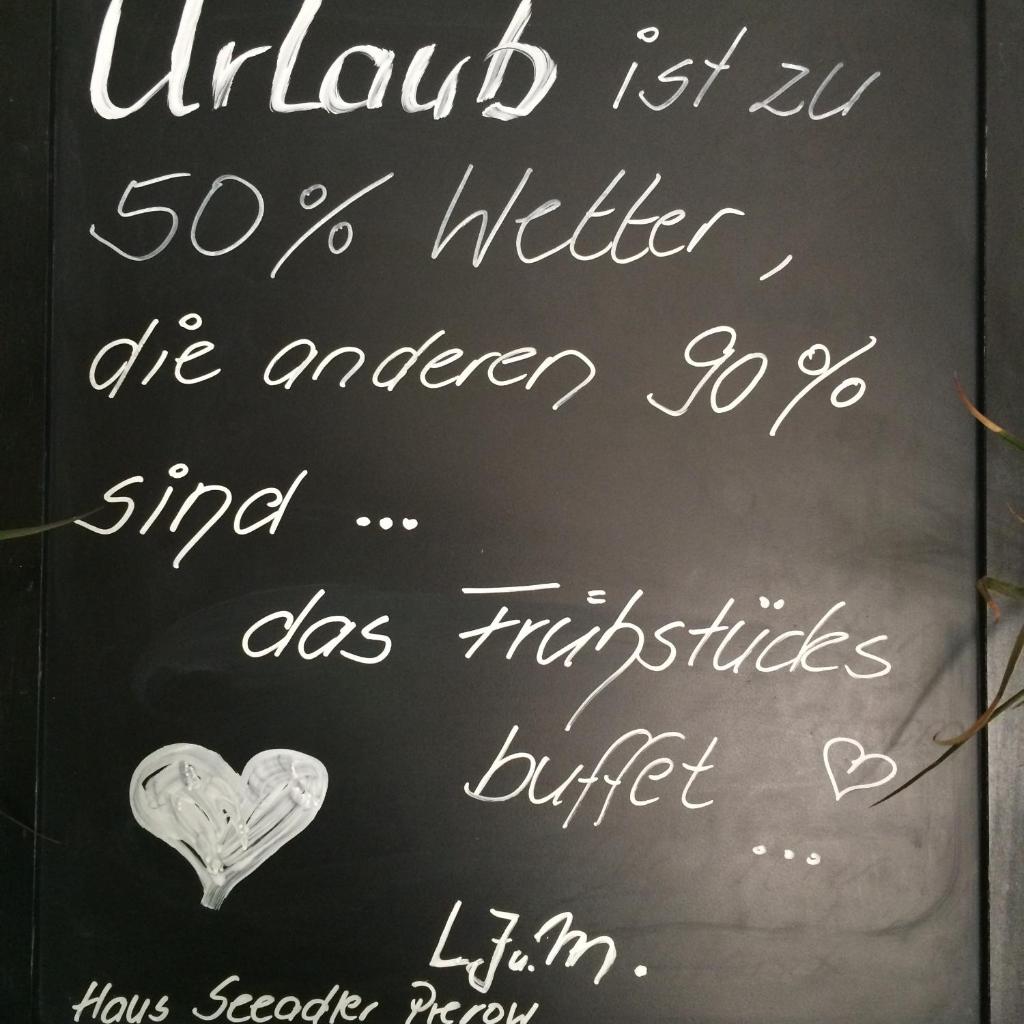 Urlaub ist zu
50% Wetter,
die anderen 90%
sind ...
das Frühstücks
buffet ♡
...
L.J.u.M.
Haus Seeadler Prerow